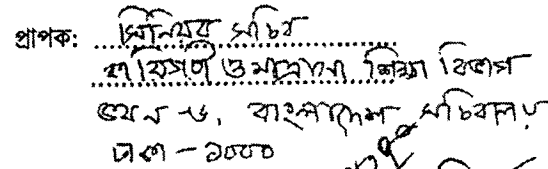 প্রাপক: সিনিয়র সচিব
কারিগরী ও মাদ্রাসা শিক্ষা বিভাগ
ভবন-৬, বাংলাদেশ সচিবালয়
ঢাকা-১০০০